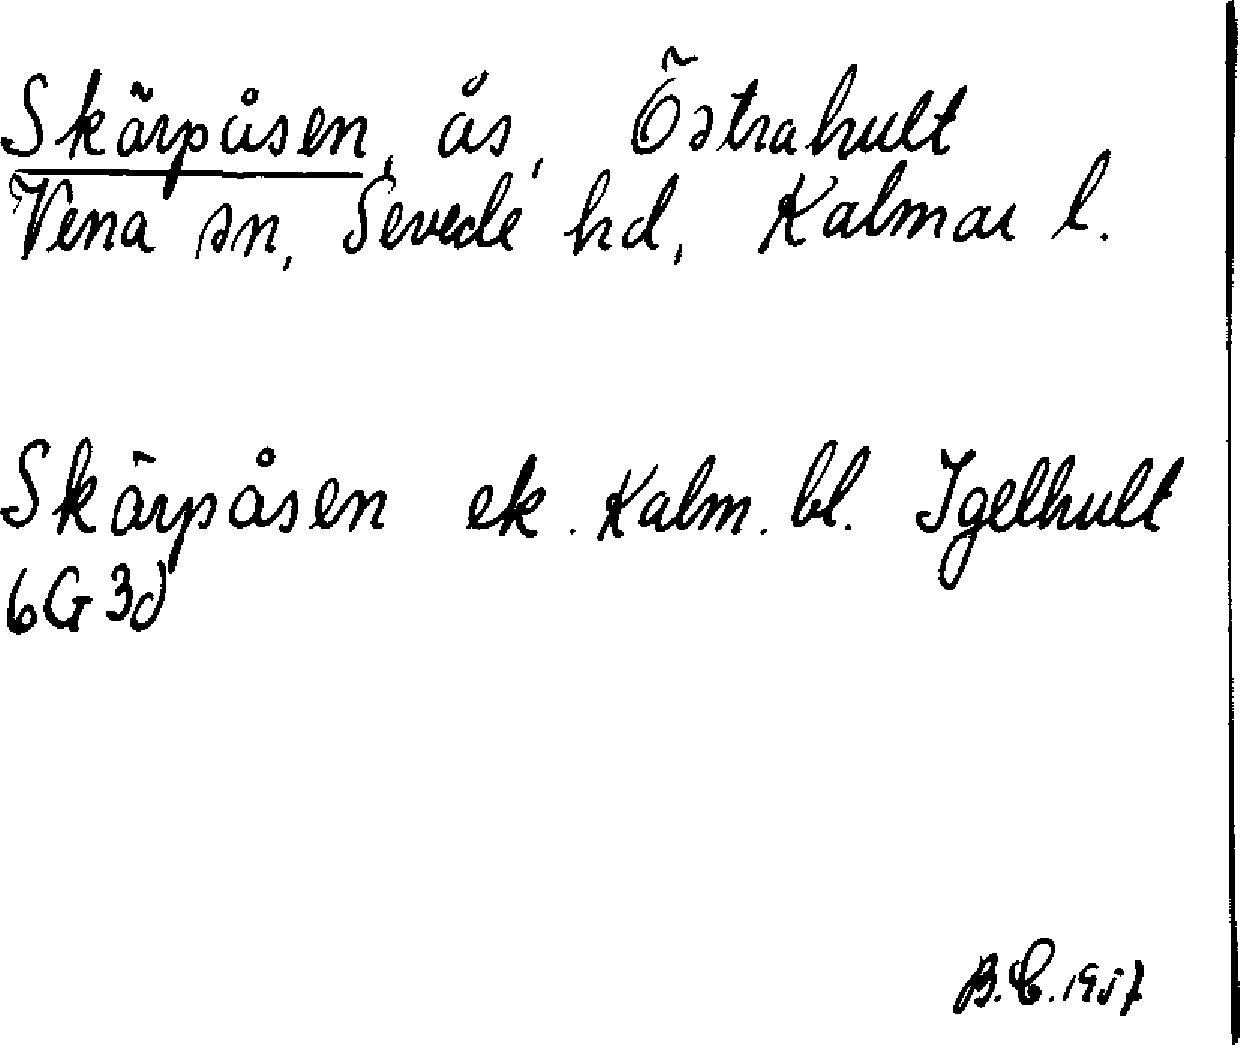 Skärpåsen, ås, Östrahult
Vena sn, Sevede hd, Kalmar l.
Skärpåsen ek. Kalm. bl. Igelhult
6G 3d
B.E. 1957